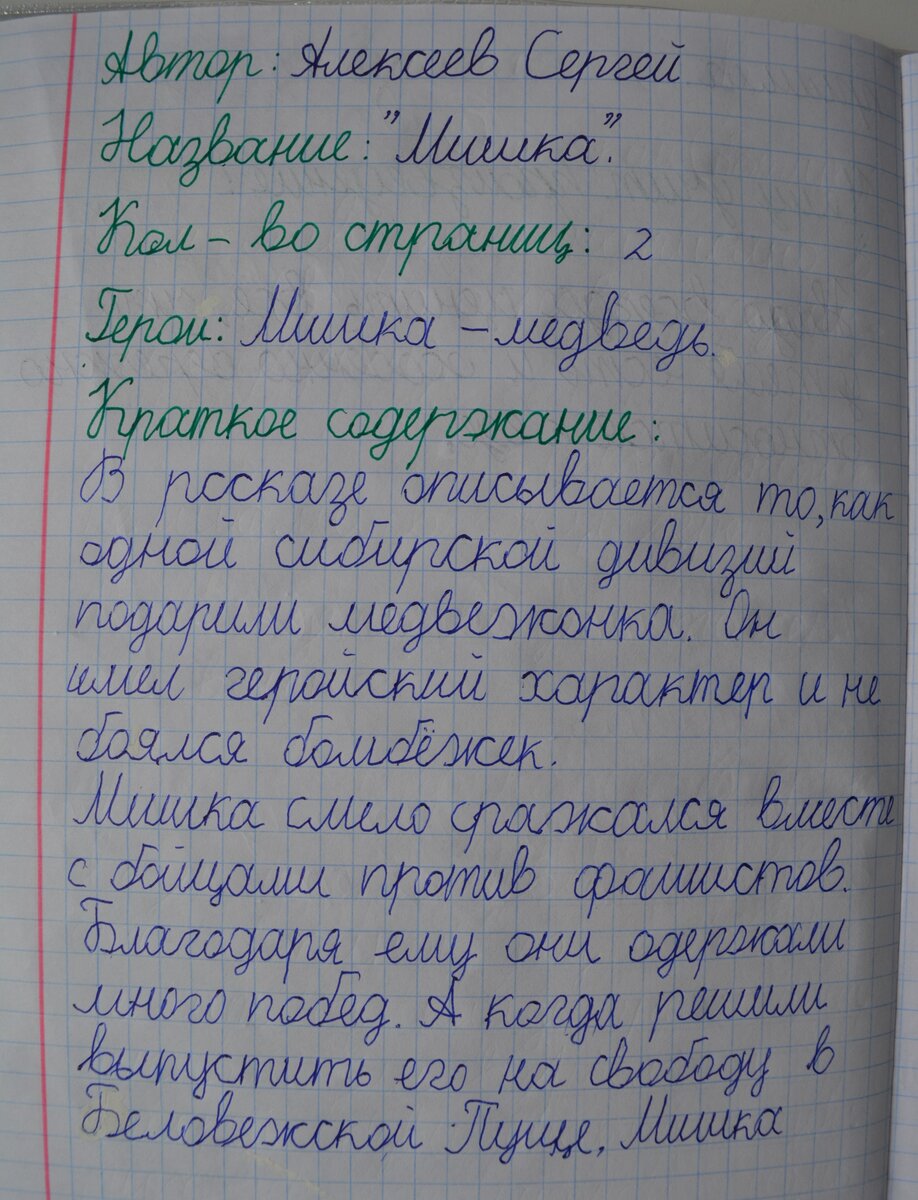 Автор: Алексеев Сергей
Название: "Мишка".
Кол-во страниц: 2
Герои: Мишка - медведь.
Краткое содержание:
В рссказе описывается то, как
одной сибирской дивизий
подарили медвежонка. Он
имел геройский характер и не
боялся бомбёжек.
Мишка смело сражался вместе
с бойцами против фашистов.
Благодаря ему они одержали
много побед. А когда решили
выпустить его на свободу в
Беловежской Пуще, Мишка